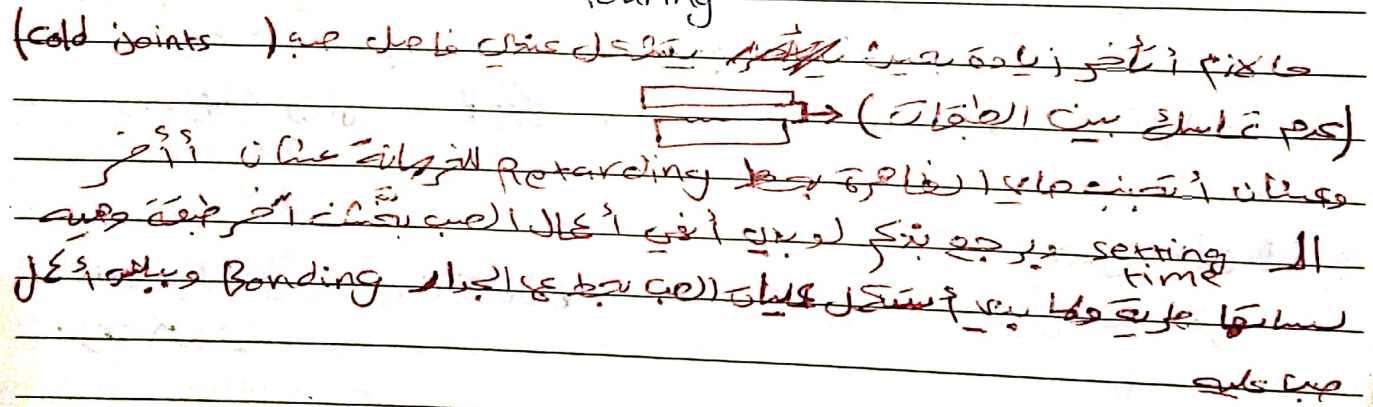 ما لازم أتأخر زيادة بحيث يتشكل عندي فاصل صب (cold joints)
(عدم تماسك بين الطبقات)
وعشان أتجنب هاي الظاهرة بحط Retarding للخرسانة عشان أأخر
الـ setting time وبرجع بذكر لو بدي أنهي أعمال الصب بخشن آخر طبقة وهيه
لساتها طرية ولما بدي أستكمل عمليات الصب بحط ع الجدار Bonding وببلش أكمل
صب عليه